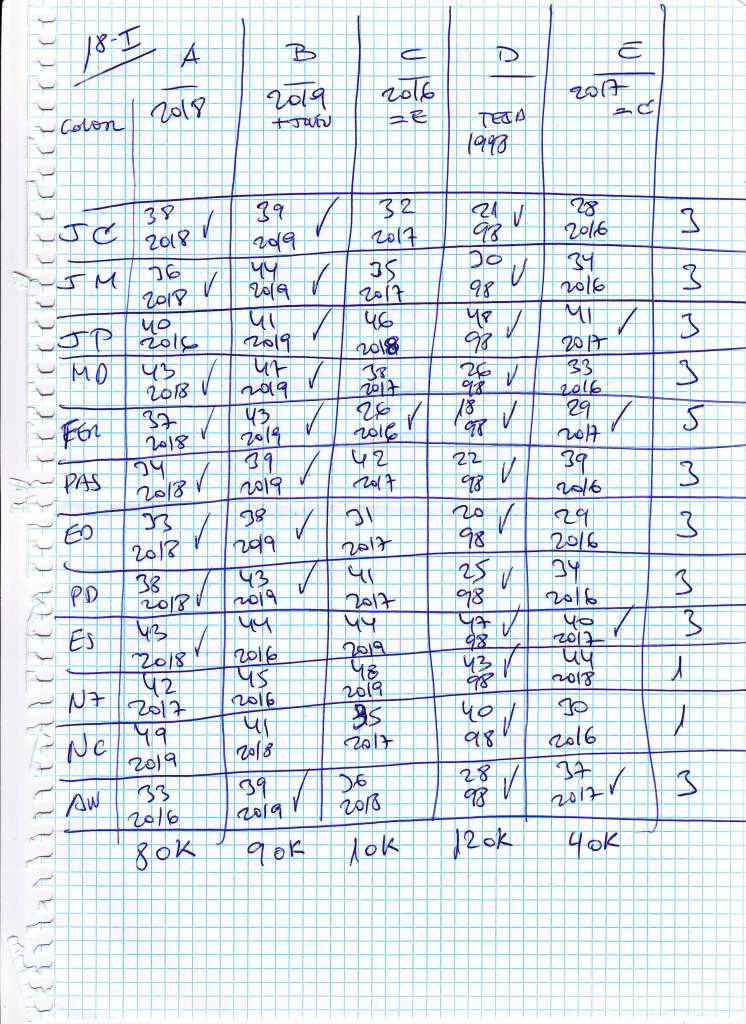 18-I
A B C D E
2018 2019 2016 TEJA 2017
COLOR + JOVEN = E 1998 = C
JC 38 39 32 21 28 3
2018 ✓ 2019 ✓ 2017 98 ✓ 2016
JM 36 44 35 30 34 3
2018 ✓ 2019 ✓ 2017 98 ✓ 2016
JP 40 41 46 48 41 3
2016 2019 ✓ 2018 98 ✓ 2017 ✓
MD 43 47 38 26 33 3
2018 ✓ 2019 ✓ 2017 98 ✓ 2016
FER 37 43 26 18 29 5
2018 ✓ 2019 ✓ 2016 ✓ 98 ✓ 2017 ✓
PAS 34 39 42 22 39 3
2018 ✓ 2019 ✓ 2017 98 ✓ 2016
ED 33 38 31 20 29 3
2018 ✓ 2019 ✓ 2017 98 ✓ 2016
PD 38 43 41 25 34 3
2018 ✓ 2019 ✓ 2017 98 ✓ 2016
ES 43 44 44 47 40 3
2018 ✓ 2016 2019 98 ✓ 2017 ✓
N7 42 45 48 43 44 1
2017 2016 2019 98 ✓ 2018
NC 49 41 35 40 30 1
2019 2018 2017 98 ✓ 2016
AW 33 39 36 28 37 3
2016 2019 ✓ 2018 98 ✓ 2017 ✓
80K 90K 10K 120K 40K